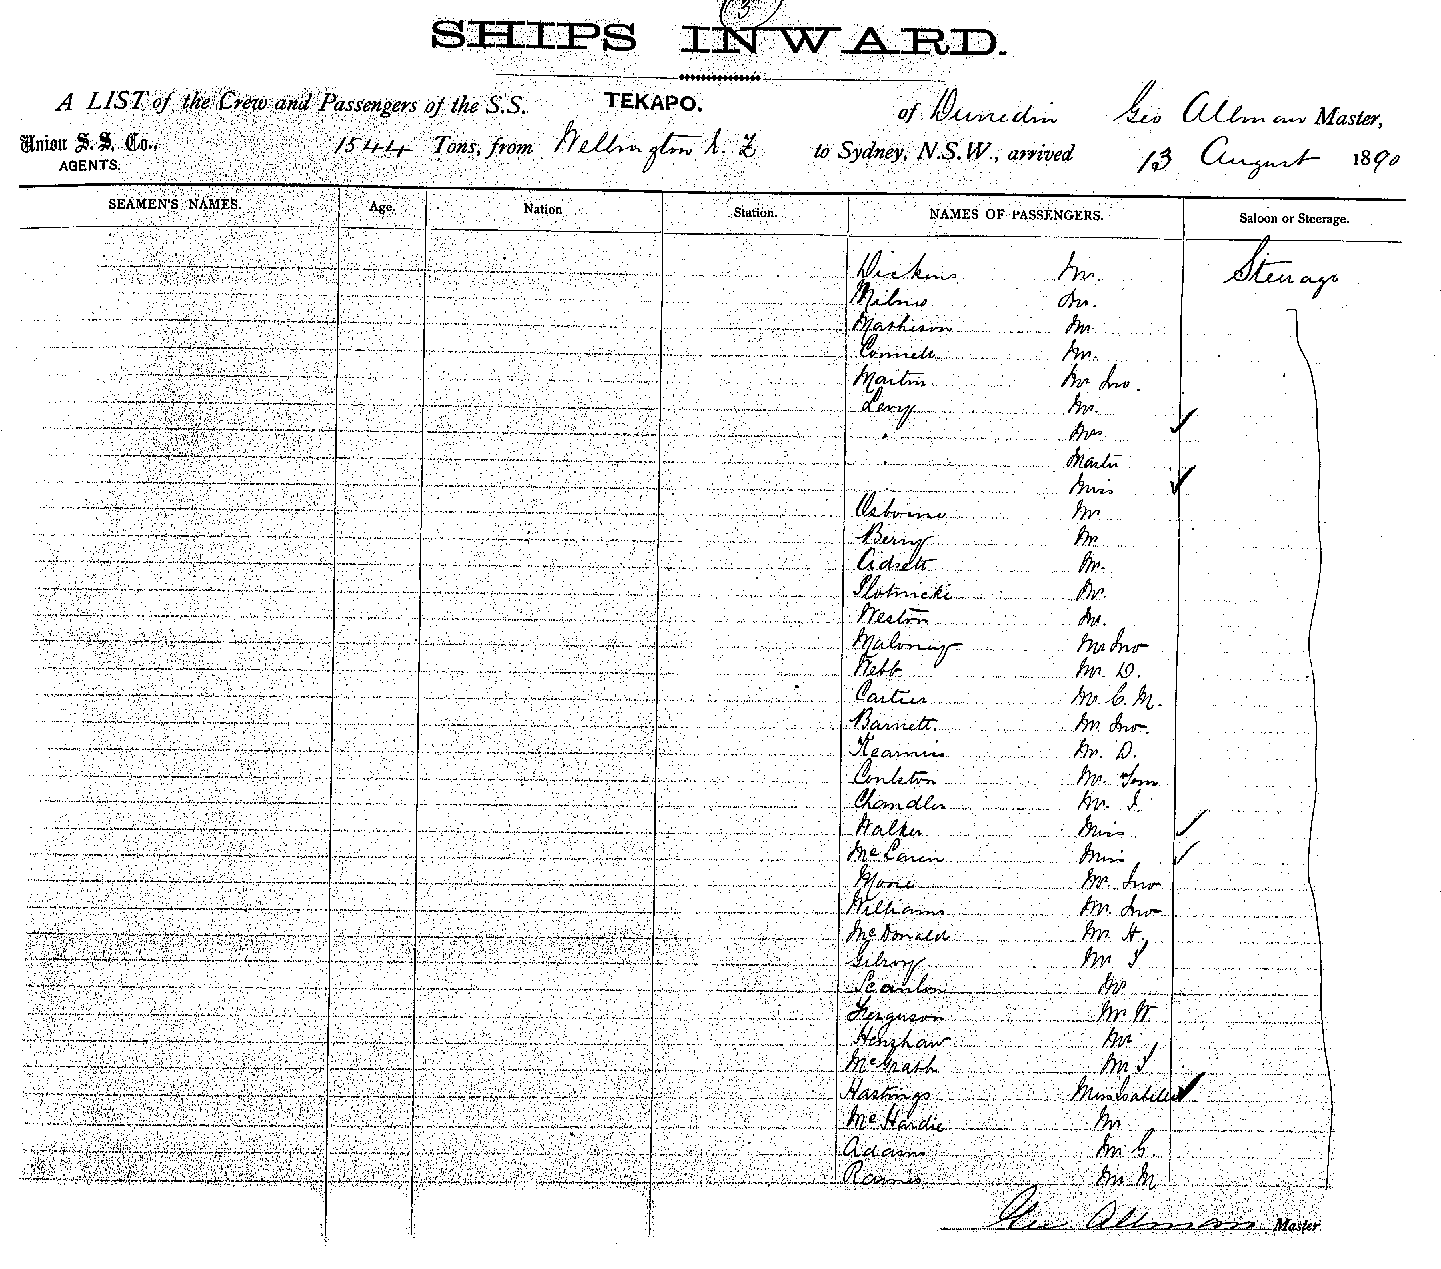 3
SHIPS INWARD.
A LIST of the Crew and Passengers of the S.S. TEKAPO. of Dunedin Geo Allman Master,
Union S. S. Co., AGENTS. 1544 Tons, from Wellington N. Z to Sydney, N.S.W., arrived 13 August 1890
SEAMEN'S NAMES. Age. Nation Station. NAMES OF PASSENGERS. Saloon or Steerage.
Dickens Mr. Steerage
Milns Mr.
Mathison Mr
Connell Mr.
Martin Mr Jno.
Levy Mr.
" Mrs ✓
" Master
Miss ✓
Osborne Mr
Berry Mr
Adsett Mr.
Plotnicki Mr.
Weston Mr.
Maloney Mr Jno
Webb Mr. D.
Carter Mr C. M.
Barnett. Mr Jno.
Kearnins Mr. D.
Coulston Mr. Tom
Chandler Mr. J
Walker Miss ✓
McLaren Miss ✓
Moore Mr. Jno
Williams Mr. Jno
McDonald Mr. H
Gilroy Mr J
Scanlon Mr
Ferguson Mr W
Henshaw Mr
McGrath Mr J
Hastings Miss Isabella ✓
McHardie Mr
Adams Mr G.
Mr M
Geo. Allman Master